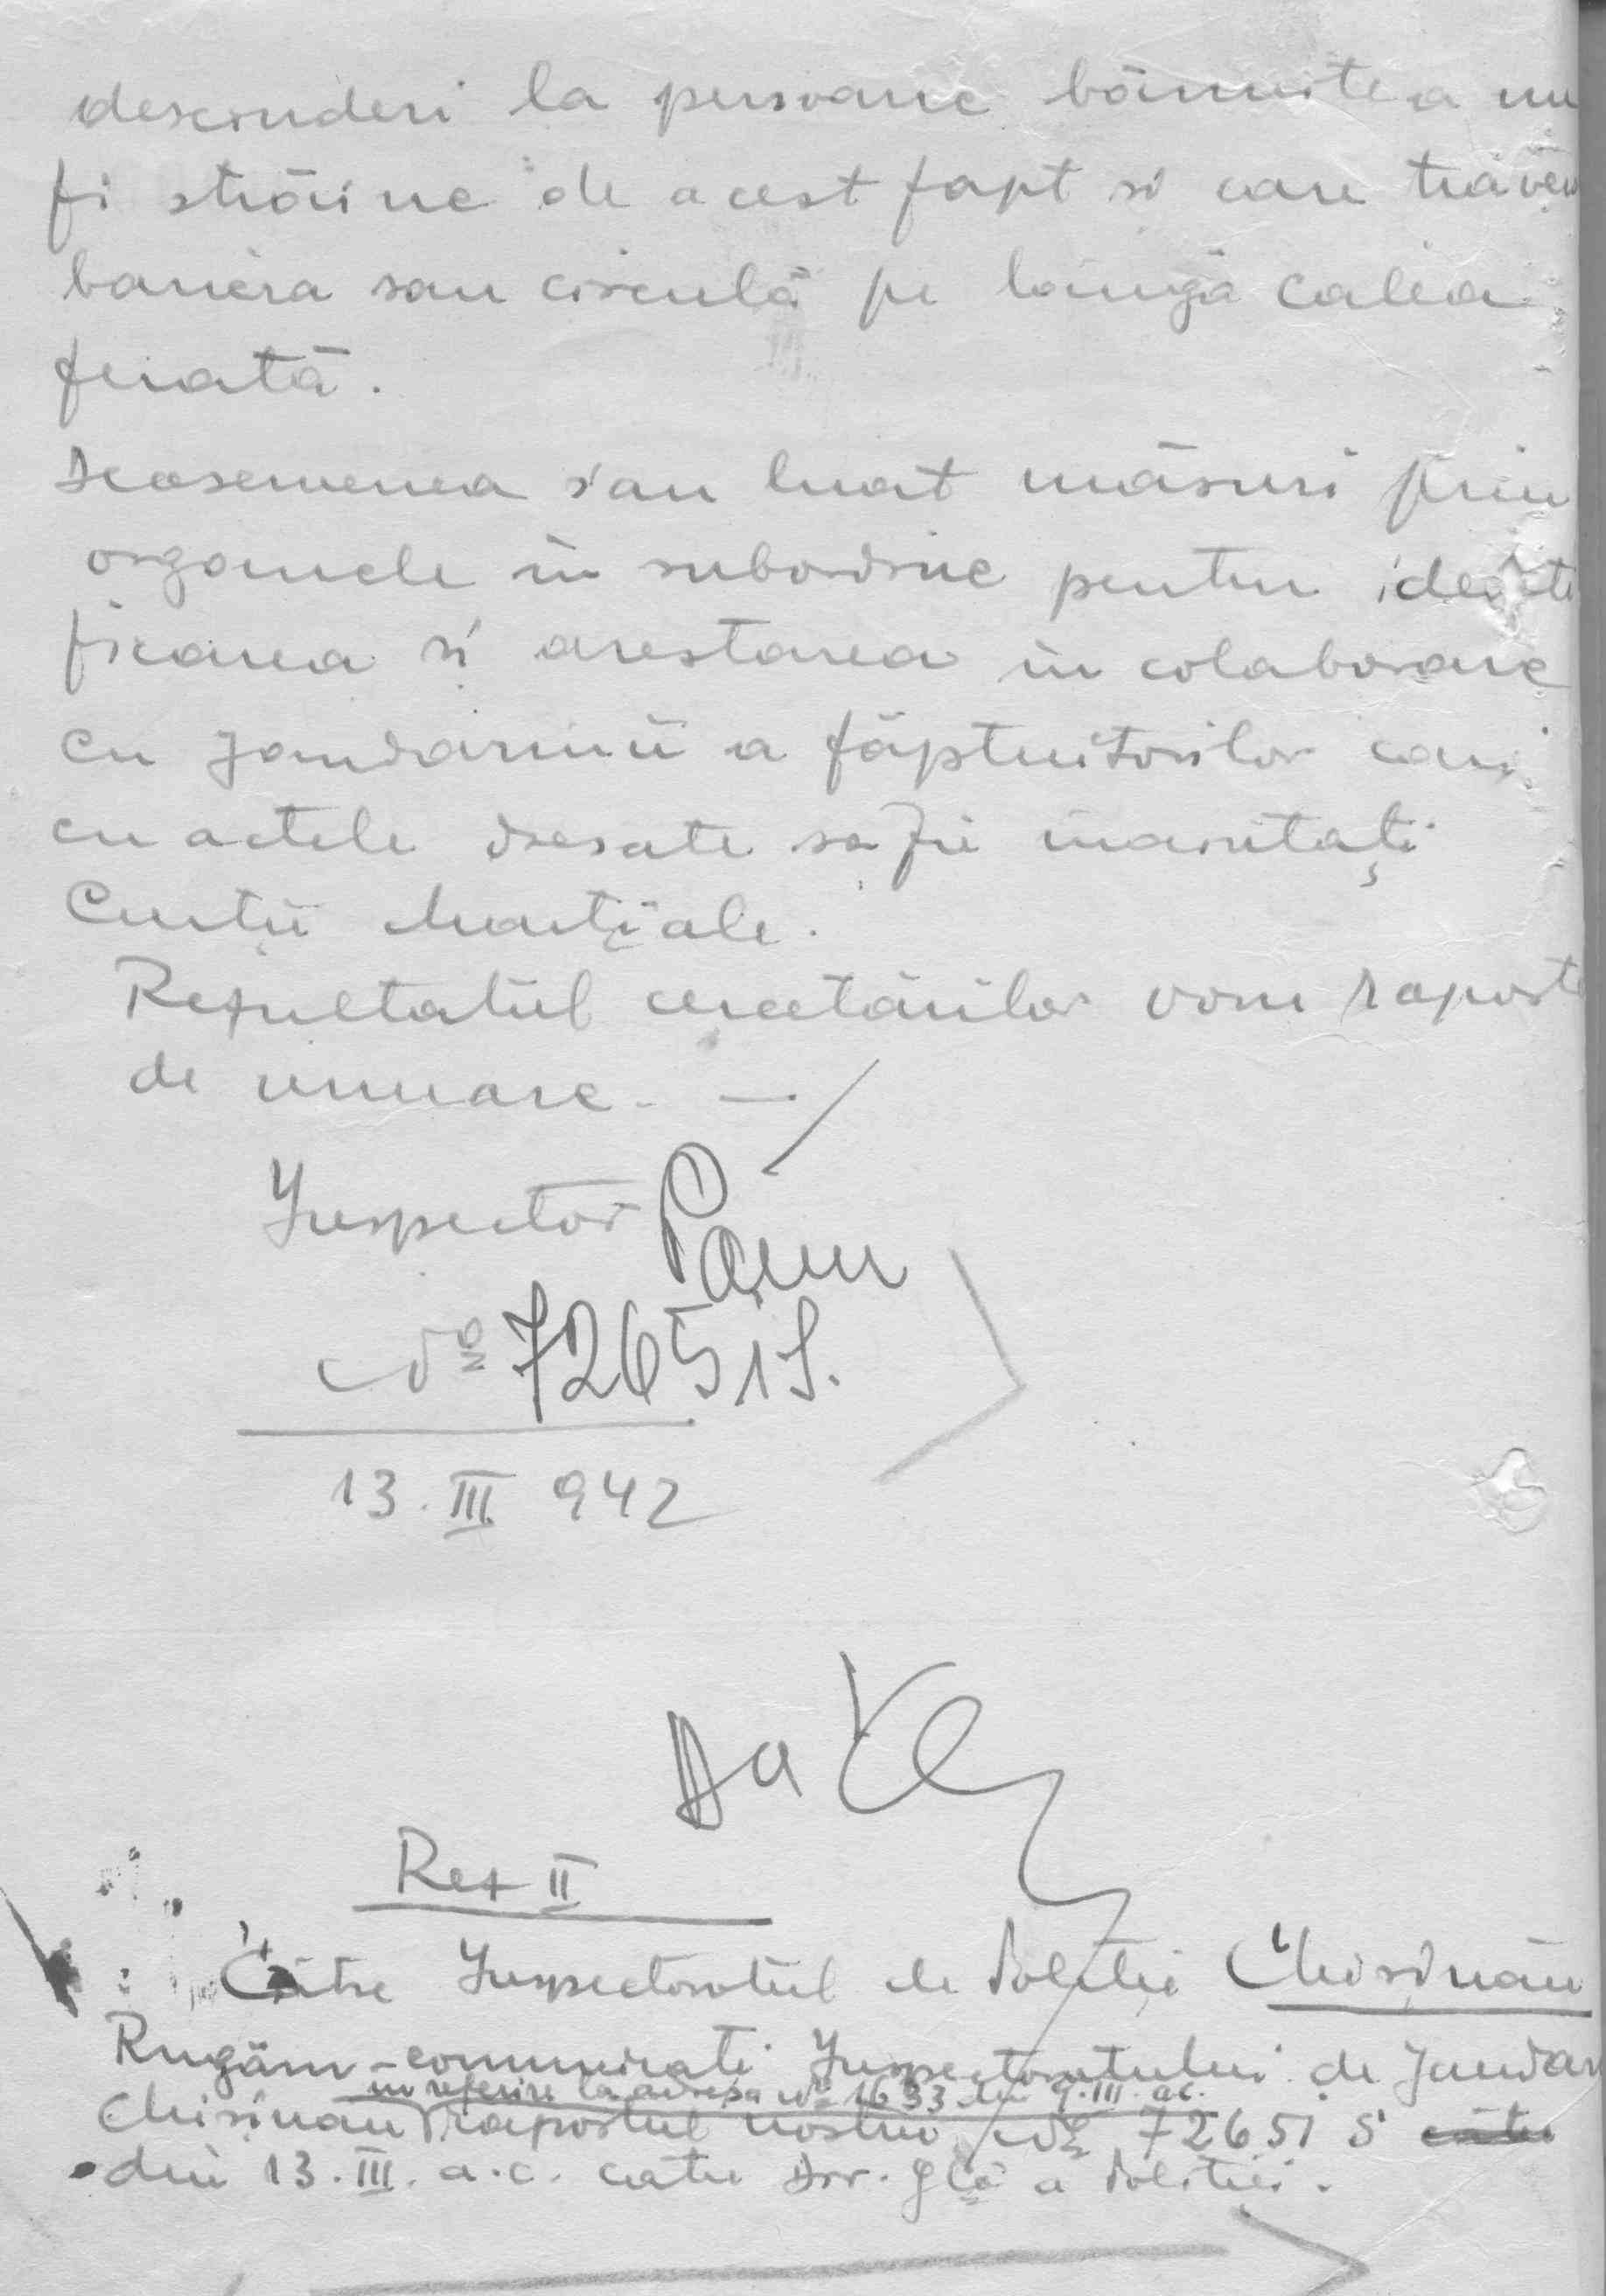 descinderi la persoane bănuite a nu
fi străine de acest fapt si care
bariera sau circulă pe lângă calea
ferată.
Deasemenea s'au luat măsuri prin
organele în subordine pentru identi
ficarea si arestarea în colaborare
cu Jandarmii a făptuitorilor cari
cu actele dresate sa fie inaintați
Curții Marțiale.
Rezultatul cercetărilor vom raporta
de urmare. —
Inspector
No 72651 S.
13. III 942
Rez II
Către Inspectoratul de Poliție Chisinău
Rugăm comunicati Inspectoratului de Jandar
in referire la adresa No 1633 din 9.III. ac.
Chisinau raportul nostru No 72651 S catre
din 13. III. a.c. catre Dir. Glă a Politiei.